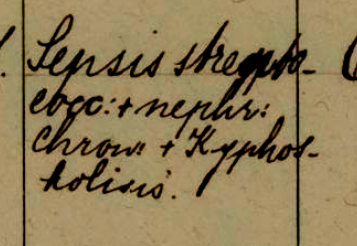 Sepsis strepto-
cocc: + nephr:
chron: + Kyphos-
koliosis.